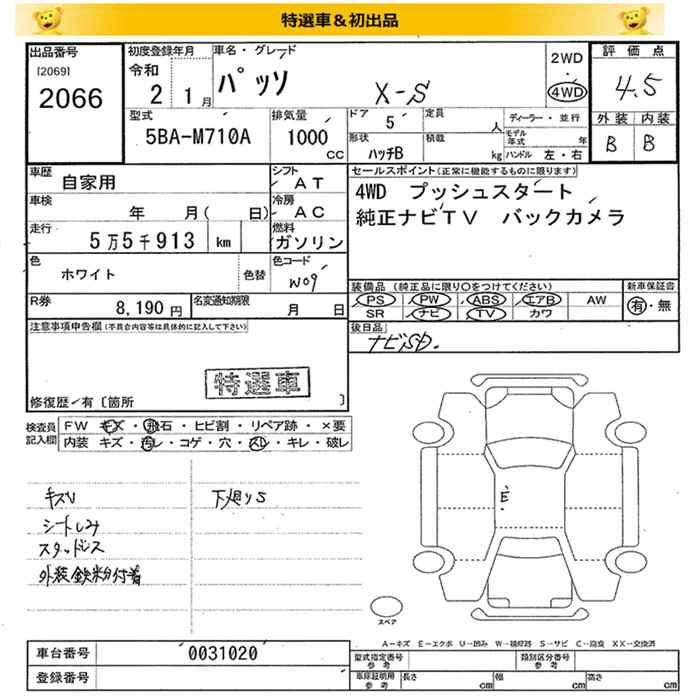 特選車&初出品
出品番号
[2069]
2066
初度登録年月
令和
2 1月
車名・グレード
パッソ X-S
2WD
・
4WD
評価点
4.5
外装 内装
B B
型式
5BA-M710A
排気量
1000
cc
ドア 5
形状
ハッチB
定員 人
積載 kg
ディーラー・並行
モデル年式 年
ハンドル 左・右
車歴 自家用
シフト AT
車検 年 月( 日)
冷房 AC
走行 5万5千913 km
燃料 ガソリン
色 ホワイト 色替
色コード W09
R券 8,190円
名変通知期限 月 日
セールスポイント(正常に機能するものに限ります)
4WD プッシュスタート
純正ナビTV バックカメラ
装備品(純正品に限り○をつけてください)
PS PW ABS エアB AW
SR ナビ TV カワ
新車保証書
有・無
後日品
ナビSD.
注意事項申告欄(不具合内容等は具体的に記入して下さい)
特選車
修復歴/有〔箇所 〕
検査員記入欄
FW キズ・飛石・ヒビ割・リペア跡・×要
内装 キズ・汚レ・コゲ・穴・スレ・キレ・破レ
キズU
シートしみ
スタッドレス
外装鉄粉付着
下廻りS
E
スペア
A-キズ E-エクボ U-凹み W-補修跡 S-サビ C-腐食 XX-交換済
車台番号 0031020
登録番号
型式指定番号 参考
類別区分番号 参考
車庫証明用 参考
長さ cm 幅 cm 高さ cm